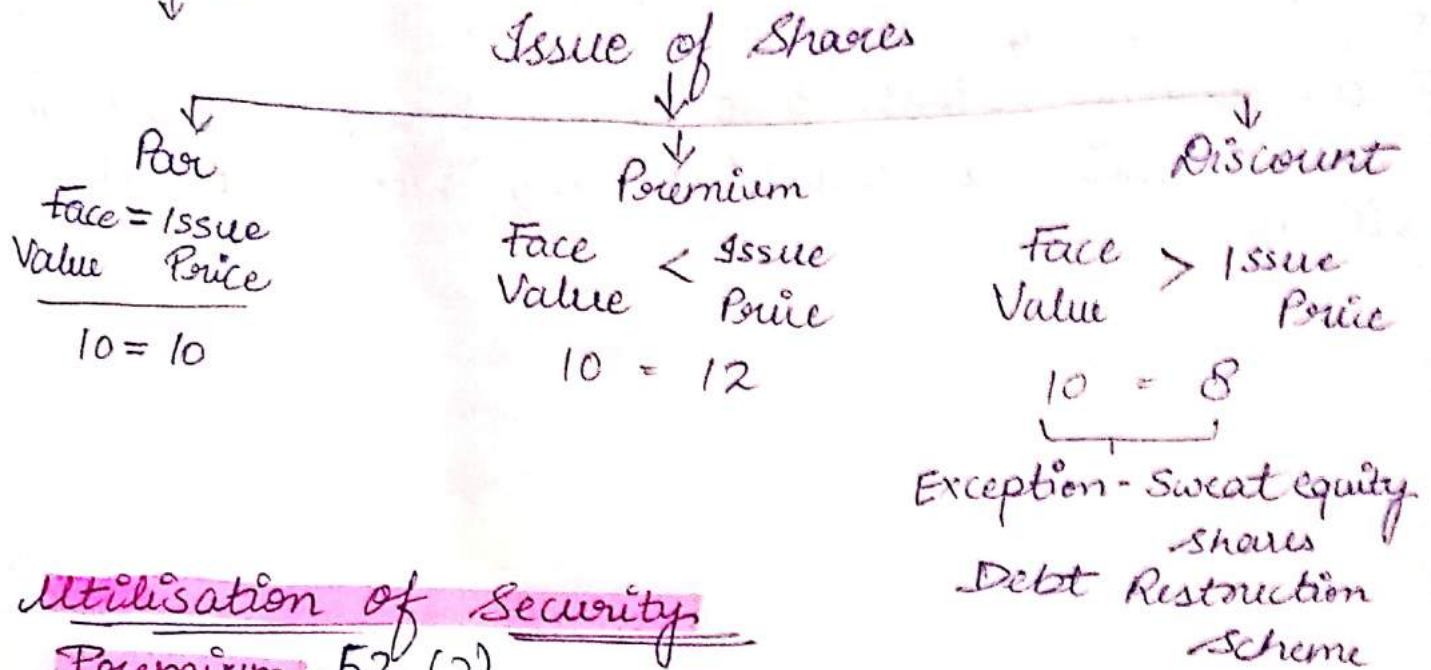 Issue of Shares
Par
Face = Issue
Value Price
10 = 10
Premium
Face < Issue
Value Price
10 = 12
Discount
Face > Issue
Value Price
10 = 8
Exception - Sweat equity
shares
Debt Restruction
Scheme
Utilisation of Security
Premium 52 (2)